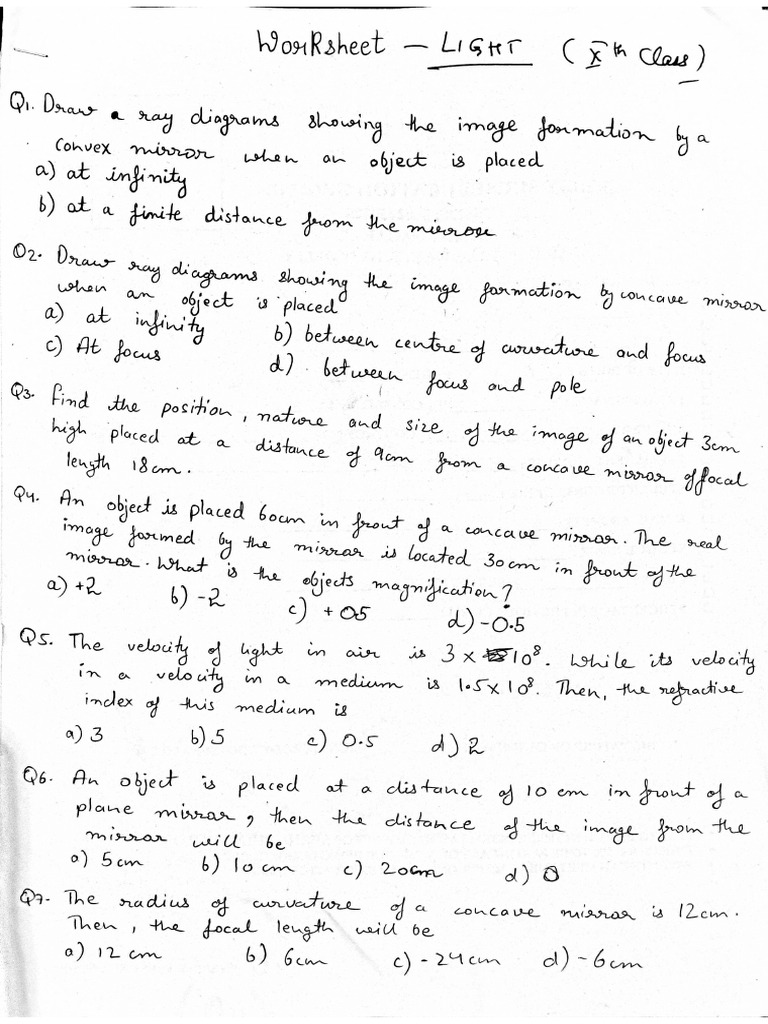 Worksheet – LIGHT (Xth Class)
Q1. Draw a ray diagrams showing the image formation by a
convex mirror when an object is placed
a) at infinity
b) at a finite distance from the mirror
Q2. Draw ray diagrams showing the image formation by concave mirror
when an object is placed
a) at infinity b) between centre of curvature and focus
c) At focus d) between focus and pole
Q3. Find the position, nature and size of the image of an object 3cm
high placed at a distance of 9cm from a concave mirror of focal
length 18cm.
Q4. An object is placed 60cm in front of a concave mirror. The real
image formed by the mirror is located 30cm in front of the
mirror. What is the objects magnification?
a) +2 b) -2 c) +0.5 d) -0.5
Q5. The velocity of light in air is 3 × 10⁸. While its velocity
in a velocity in a medium is 1.5×10⁸. Then, the refractive
index of this medium is
a) 3 b) 5 c) 0.5 d) 2
Q6. An object is placed at a distance of 10 cm in front of a
plane mirror, then the distance of the image from the
mirror will be
a) 5cm b) 10cm c) 20cm d) 0
Q7. The radius of curvature of a concave mirror is 12cm.
Then, the focal length will be
a) 12 cm b) 6cm c) -24cm d) -6cm